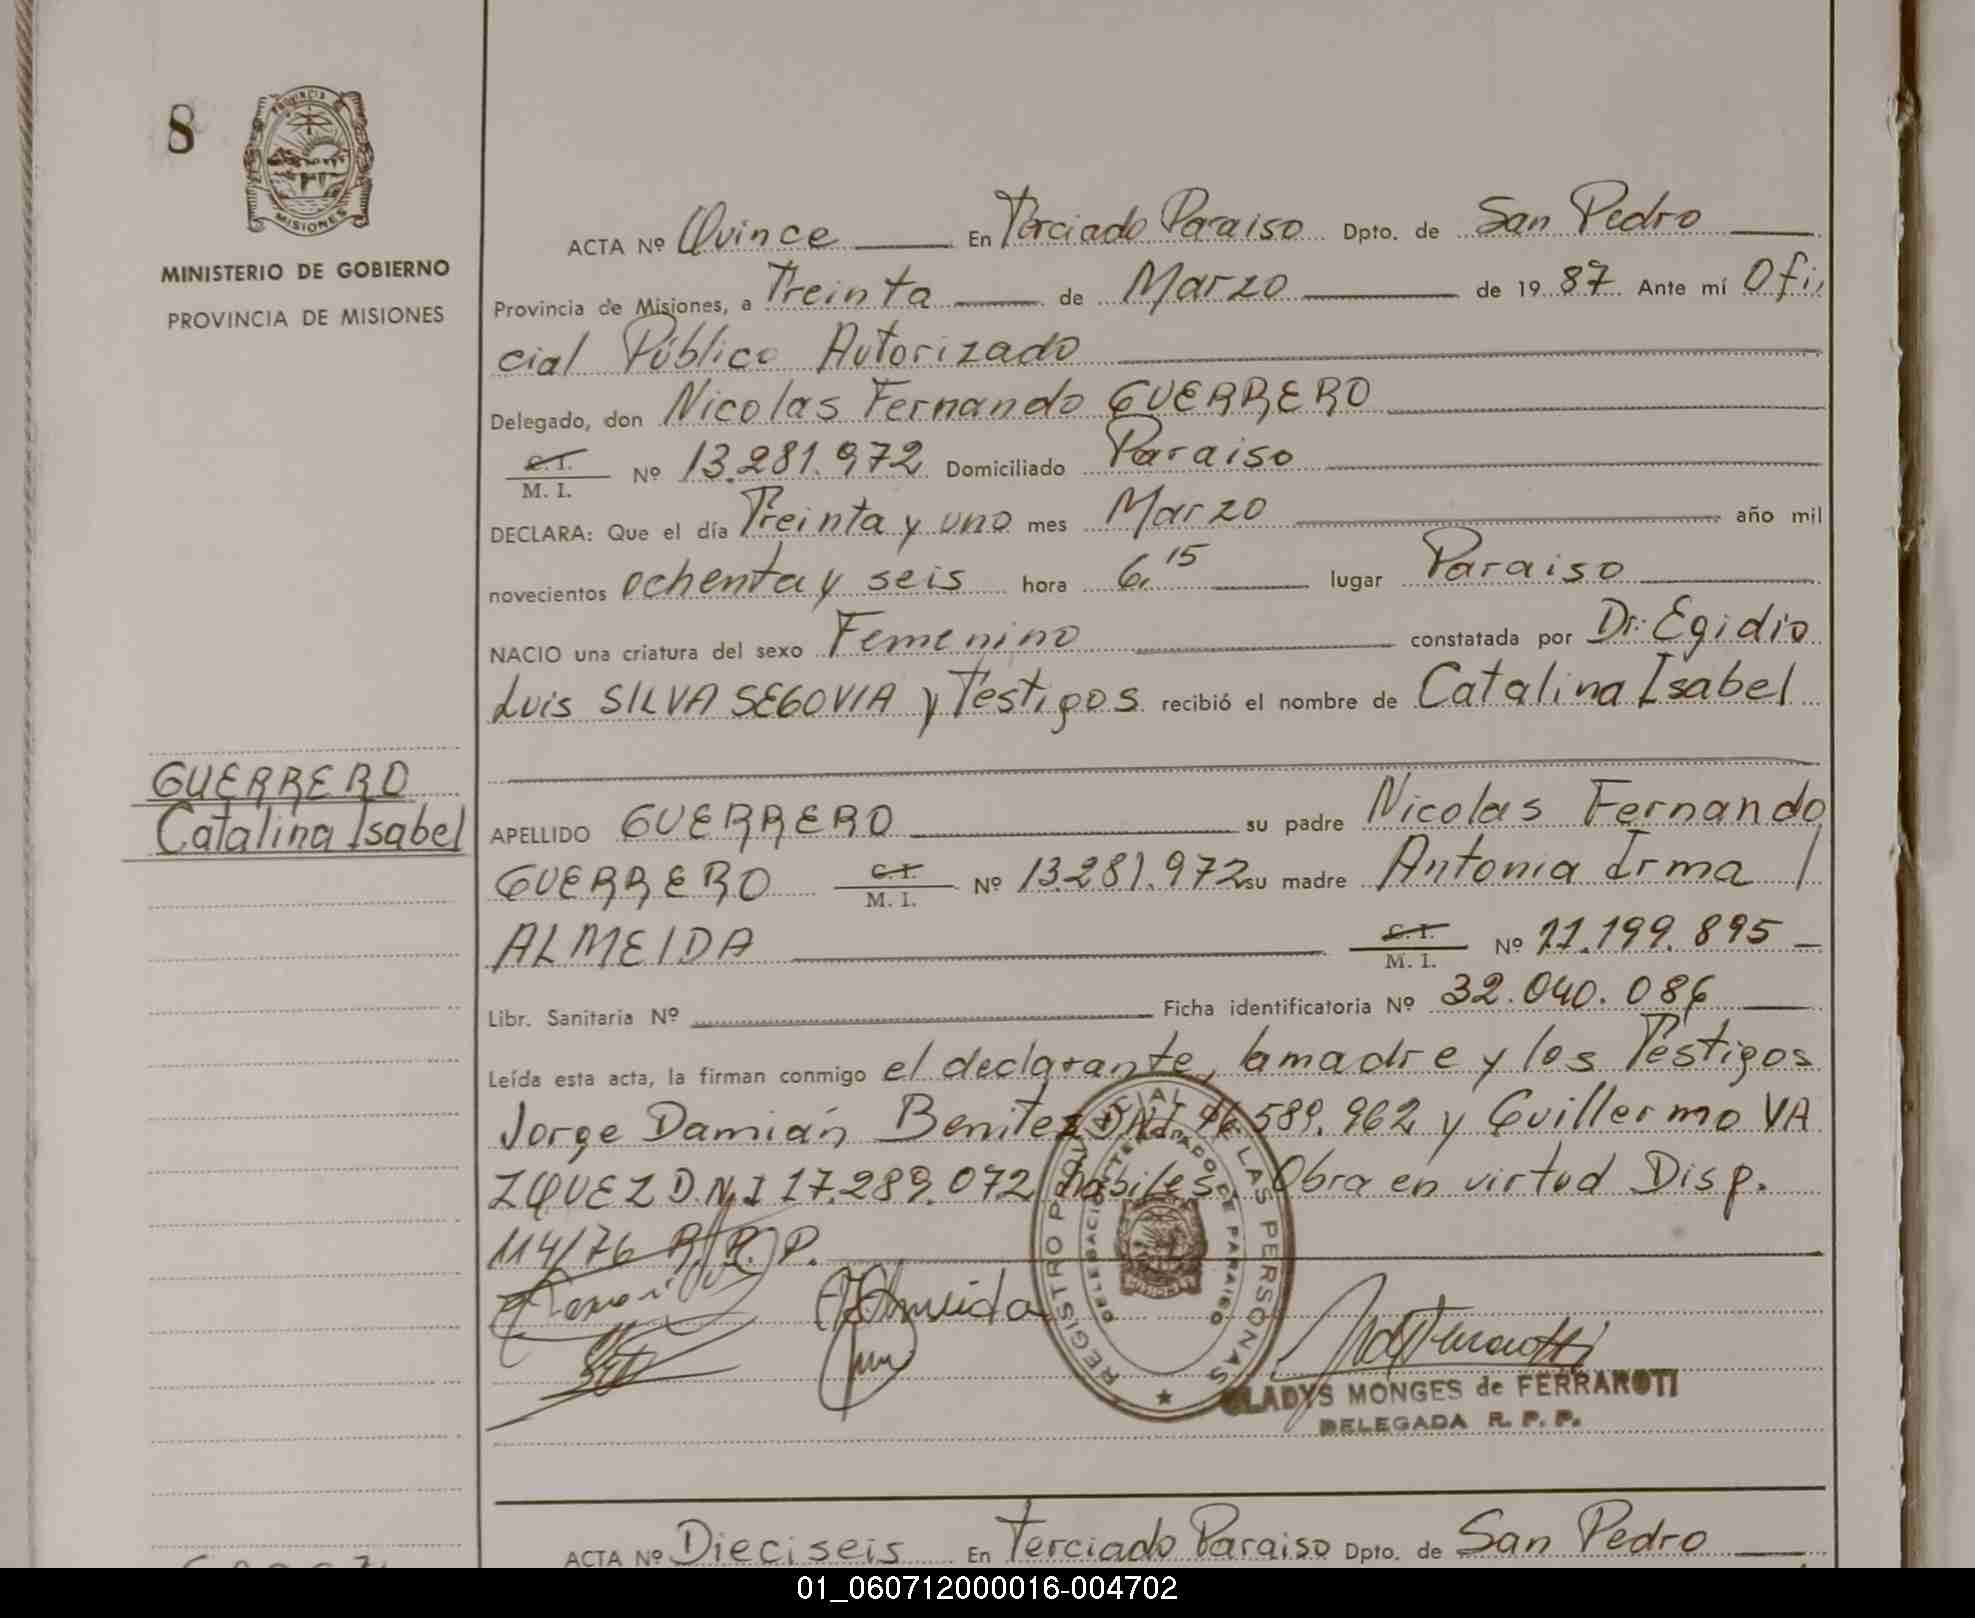 8
PROVINCIA
MISIONES
MINISTERIO DE GOBIERNO
PROVINCIA DE MISIONES
GUERRERO
Catalina Isabel
ACTA Nº Quince En Terciado Paraiso Dpto. de San Pedro
Provincia de Misiones, a Treinta de Marzo de 1987 Ante mí Ofi,
cial Público Autorizado
Delegado, don Nicolas Fernando GUERRERO
C.I.
M. I. Nº 13.281.972 Domiciliado Paraiso
DECLARA: Que el día Treinta y uno mes Marzo año mil
novecientos ochenta y seis hora 6.15 lugar Paraiso
NACIO una criatura del sexo Femenino constatada por Dr. Egidio
Luis SILVA SEGOVIA y Testigos recibió el nombre de Catalina Isabel
APELLIDO GUERRERO su padre Nicolas Fernando
GUERRERO C.I. M. I. Nº 13.281.972 su madre Antonia Irma /
ALMEIDA C.I. M. I. Nº 11.199.895
Libr. Sanitaria Nº Ficha identificatoria Nº 32.040.086
Leída esta acta, la firman conmigo el declarante, la madre y los Testigos
Jorge Damián Benitez DNI 589.962 y Guillermo VA
ZQUEZ D.N.I 17.289.072 habiles. Obra en virtud Disp.
114/76 R.P.P.
Almeida
REGISTRO PROVINCIAL DE LAS PERSONAS
DE PARAISO
GLADYS MONGES de FERRAROTI
DELEGADA R. P. P.
ACTA Nº Dieciseis En Terciado Paraiso Dpto. de San Pedro
01_060712000016-004702